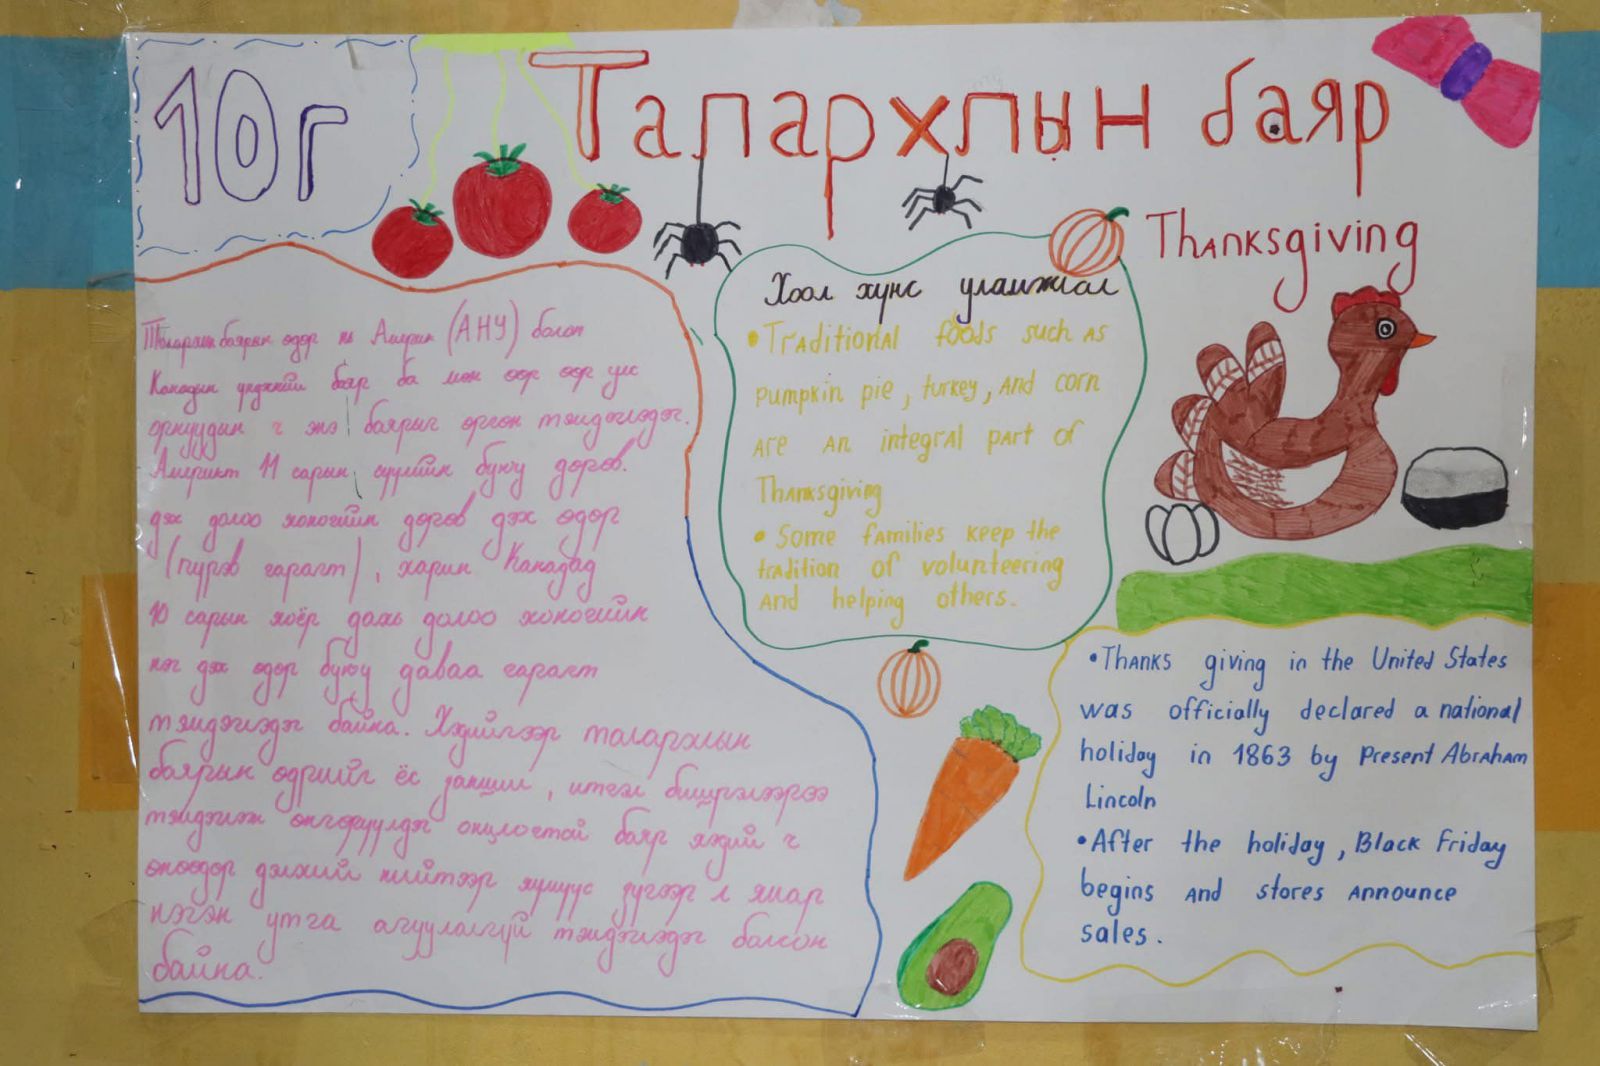 10г
Талархлын баяр
Thanksgiving
Талархлын баярын өдөр нь Америк (АНУ) болон
Канадын үндэсний баяр ба мөн өөр өөр улс
орнуудын ч энэ баярыг өргөн тэмдэглэдэг.
Америкт 11 сарын сүүлийн буюу дөрөв.
дэх долоо хоногийн дөрөв дэх өдөр
(пүрэв гарагт), харин Канадад
10 сарын хоёр дахь долоо хоногийн
нэг дэх өдөр буюу даваа гарагт
тэмдэглэдэг байна. Хэдийгээр талархлын
баярын өдрийг ёс заншил, итгэл бишрэлээрээ
тэмдэглэж өнгөрүүлдэг онцлогтой баяр хэдий ч
өнөөдөр дэлхий нийтээр хүмүүс зүгээр л ямар
нэгэн утга агуулгагүй тэмдэглэдэг болсон
байна.
Хоол хүнс уламжлал
• Traditional foods such as
pumpkin pie, turkey, and corn
are an integral part of
Thanksgiving
• Some families keep the
tradition of volunteering
and helping others.
• Thanks giving in the United States
was officially declared a national
holiday in 1863 by Present Abraham
Lincoln
• After the holiday, Black Friday
begins and stores announce
sales.